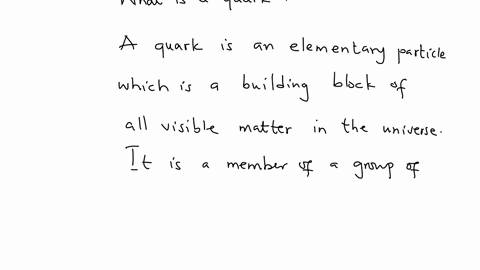 What is a quark ?
A quark is an elementary particle
which is a building block of
all visible matter in the universe.
It is a member of a group of